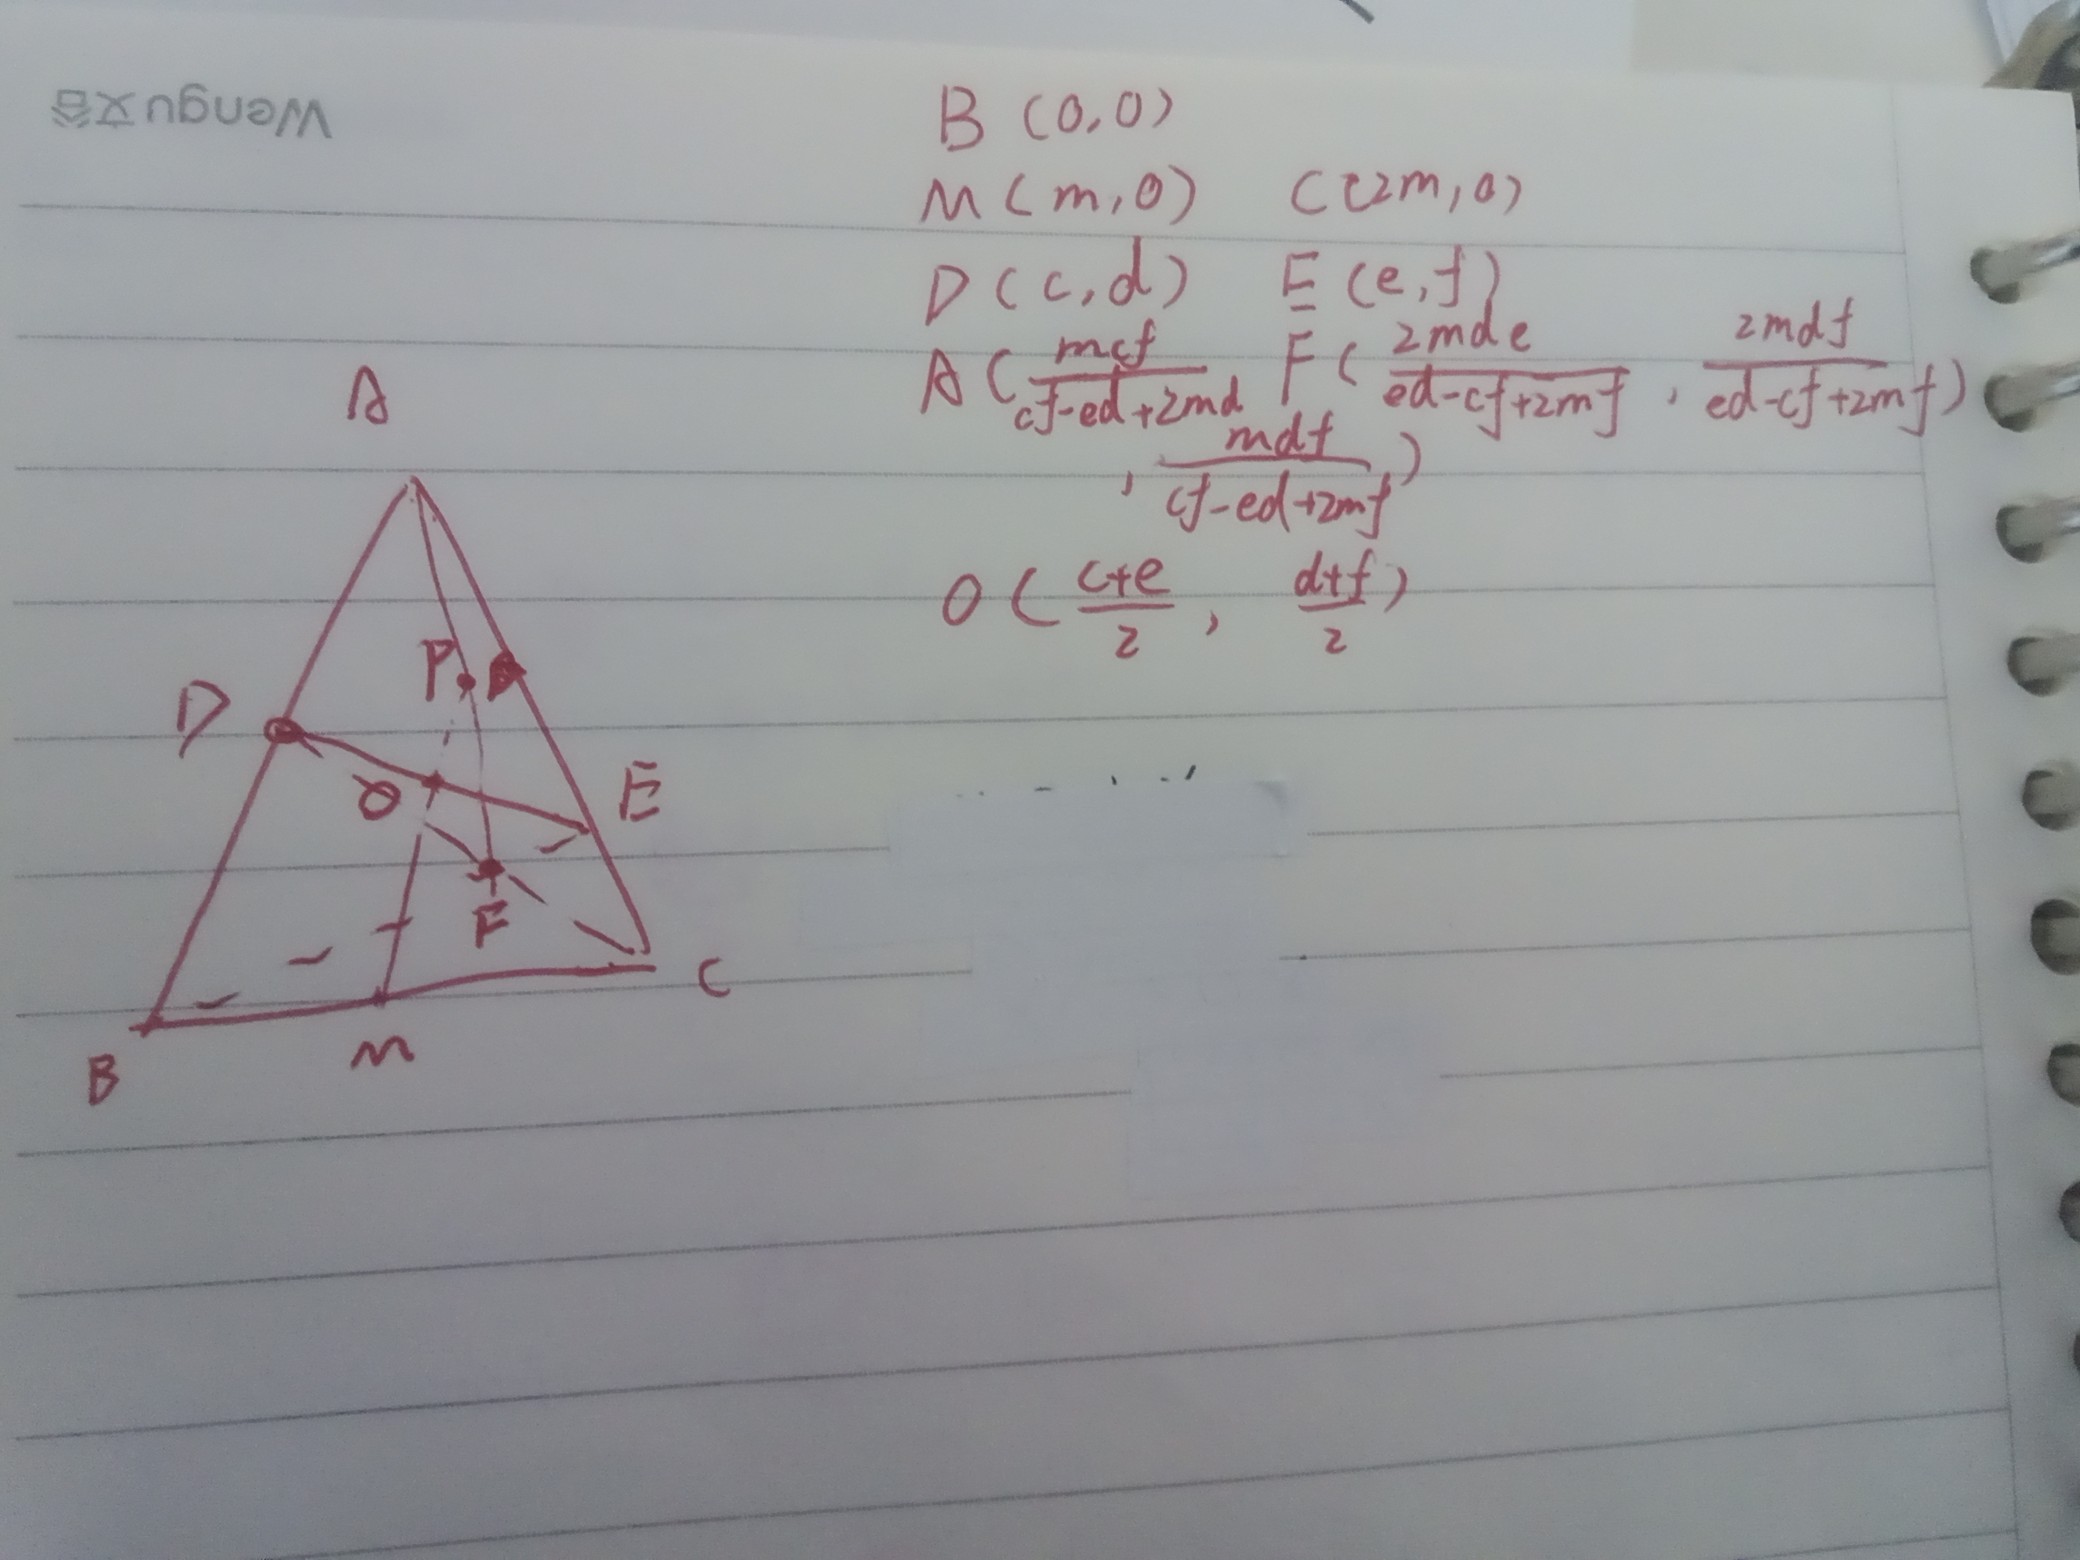 Wengu文谷
B (0,0)
M (m,0) C (2m,0)
D (c,d) E (e,f)
A ( \frac{mcf}{cf-ed+2md} F ( \frac{2mde}{ed-cf+2mf} , \frac{2mdf}{ed-cf+2mf} )
, \frac{mdf}{cf-ed+2mf} )
O ( \frac{c+e}{2} , \frac{d+f}{2} )
A
P
D
O
E
F
C
M
B